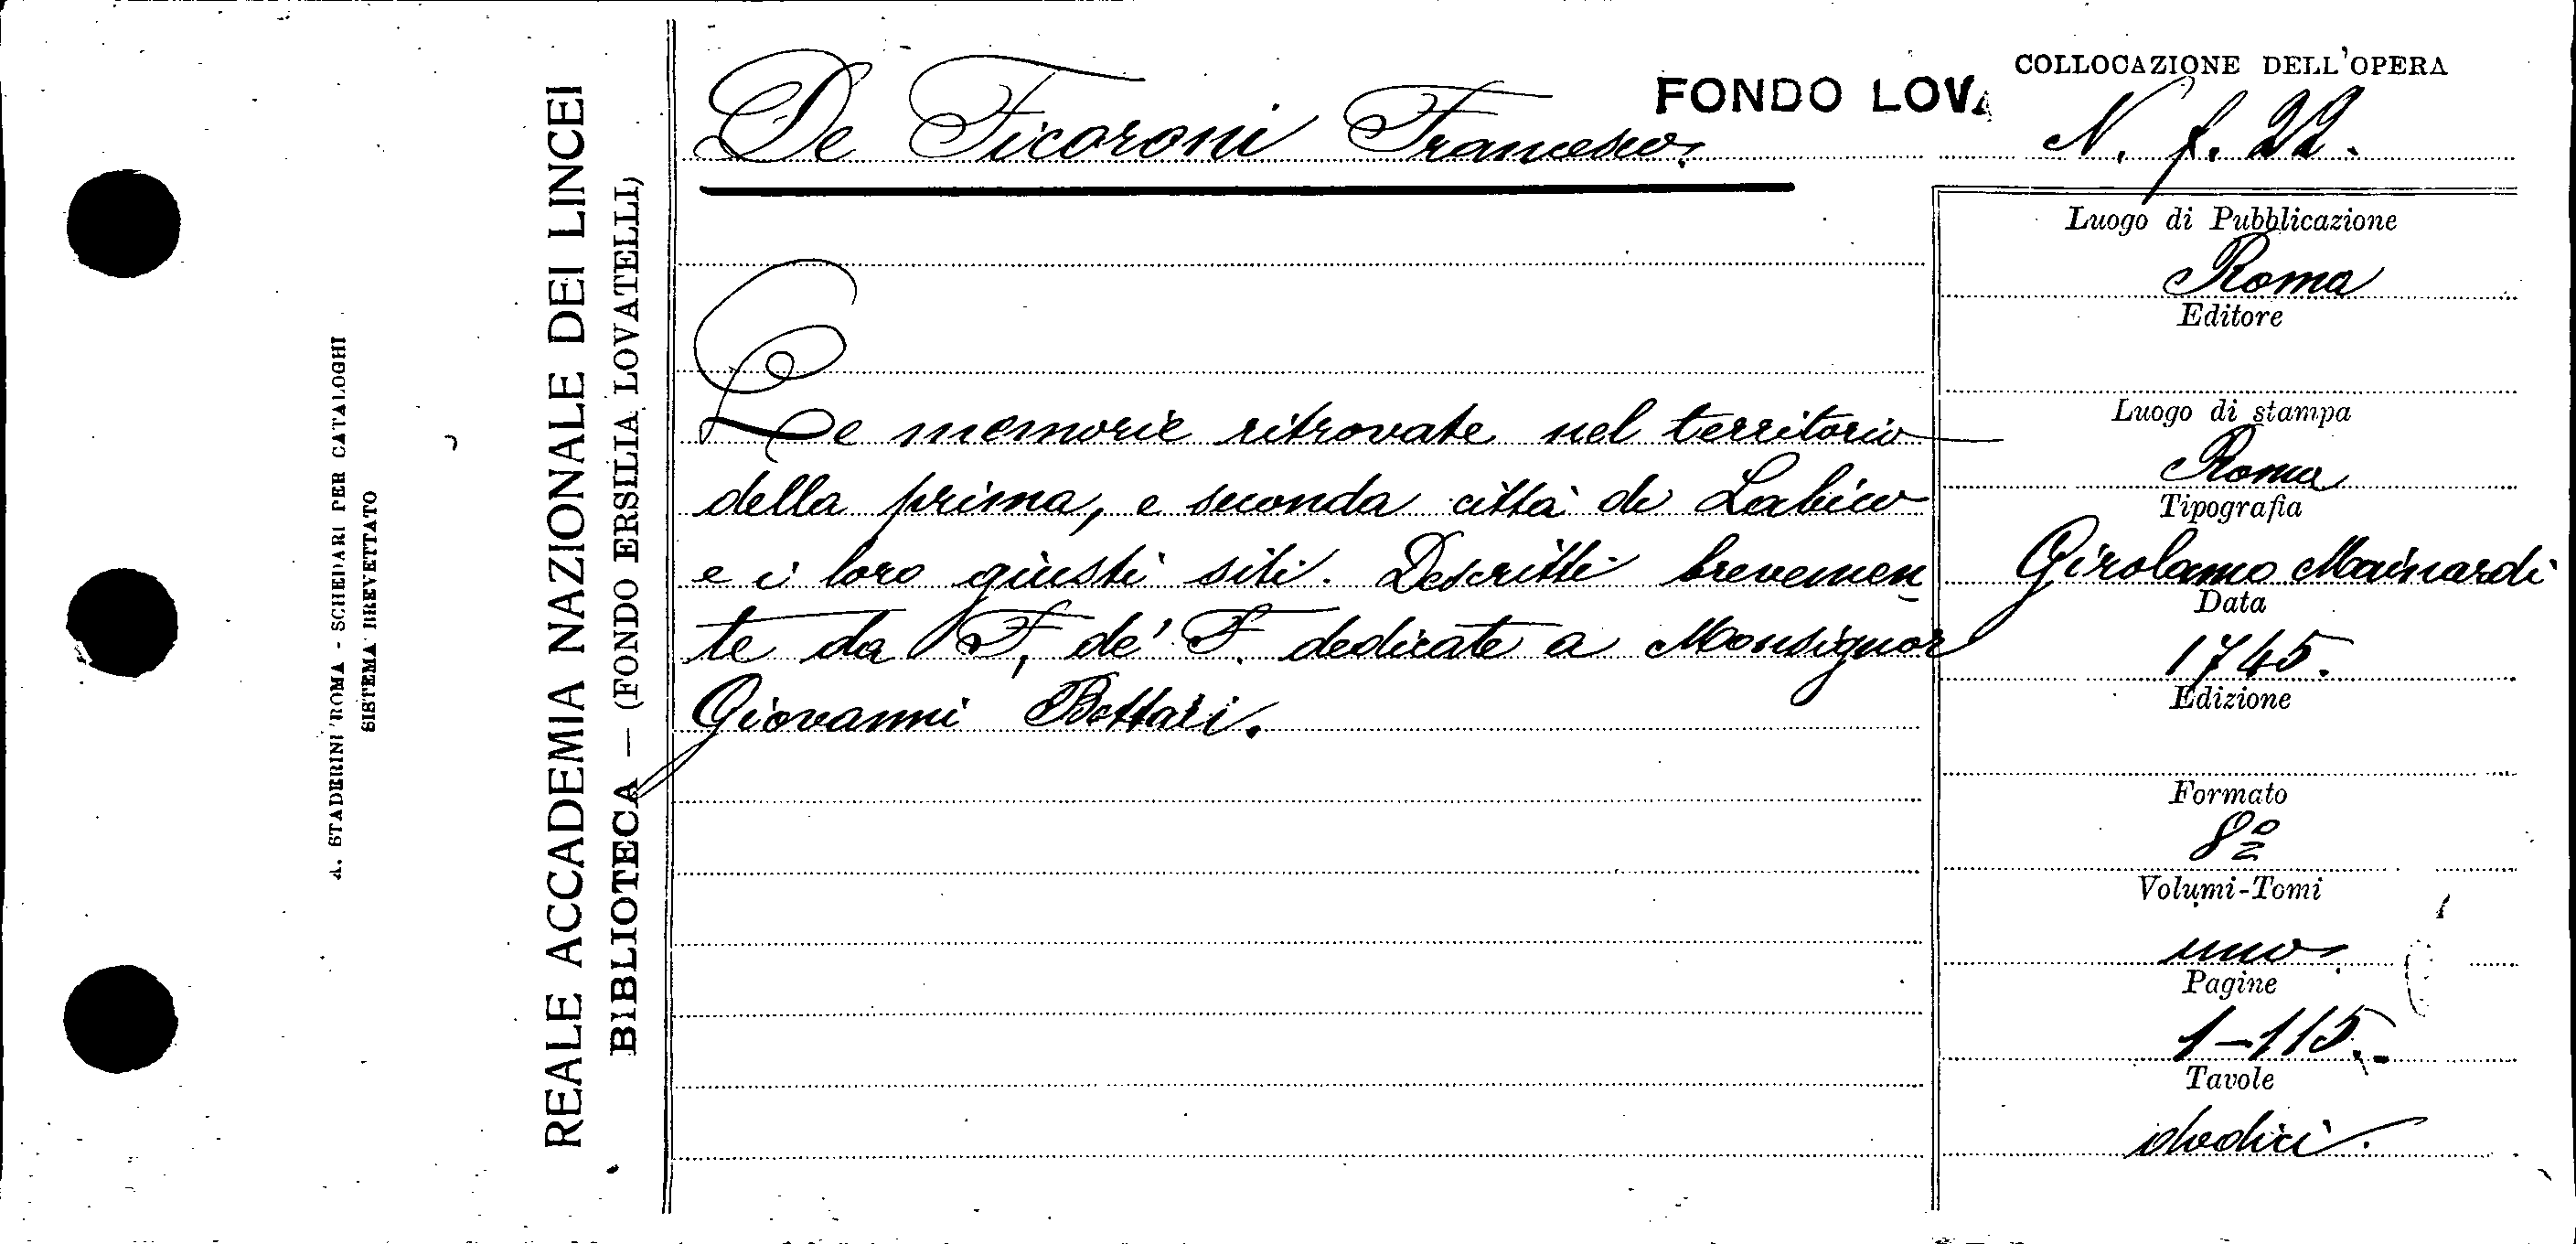 A. STADERINI ROMA - SCHEDARI PER CATALOGHI
SISTEMA BREVETTATO
REALE ACCADEMIA NAZIONALE DEI LINCEI
BIBLIOTECA — (FONDO ERSILIA LOVATELLI)
De Ficoroni Francesco.
FONDO LOVA
COLLOCAZIONE DELL'OPERA
N. f. 22.
Le memorie ritrovate nel territorio
della prima, e seconda città di Labico
e i loro giusti siti. Descritti brevemen
te da F. de' F. dedicate a Monsignor
Giovanni Bottari.
Luogo di Pubblicazione
Roma
Editore
Luogo di stampa
Roma
Tipografia
Girolamo Mainardi
Data
1745.
Edizione
Formato
8º
Volumi-Tomi
uno.
Pagine
1-115.
Tavole
dodici.